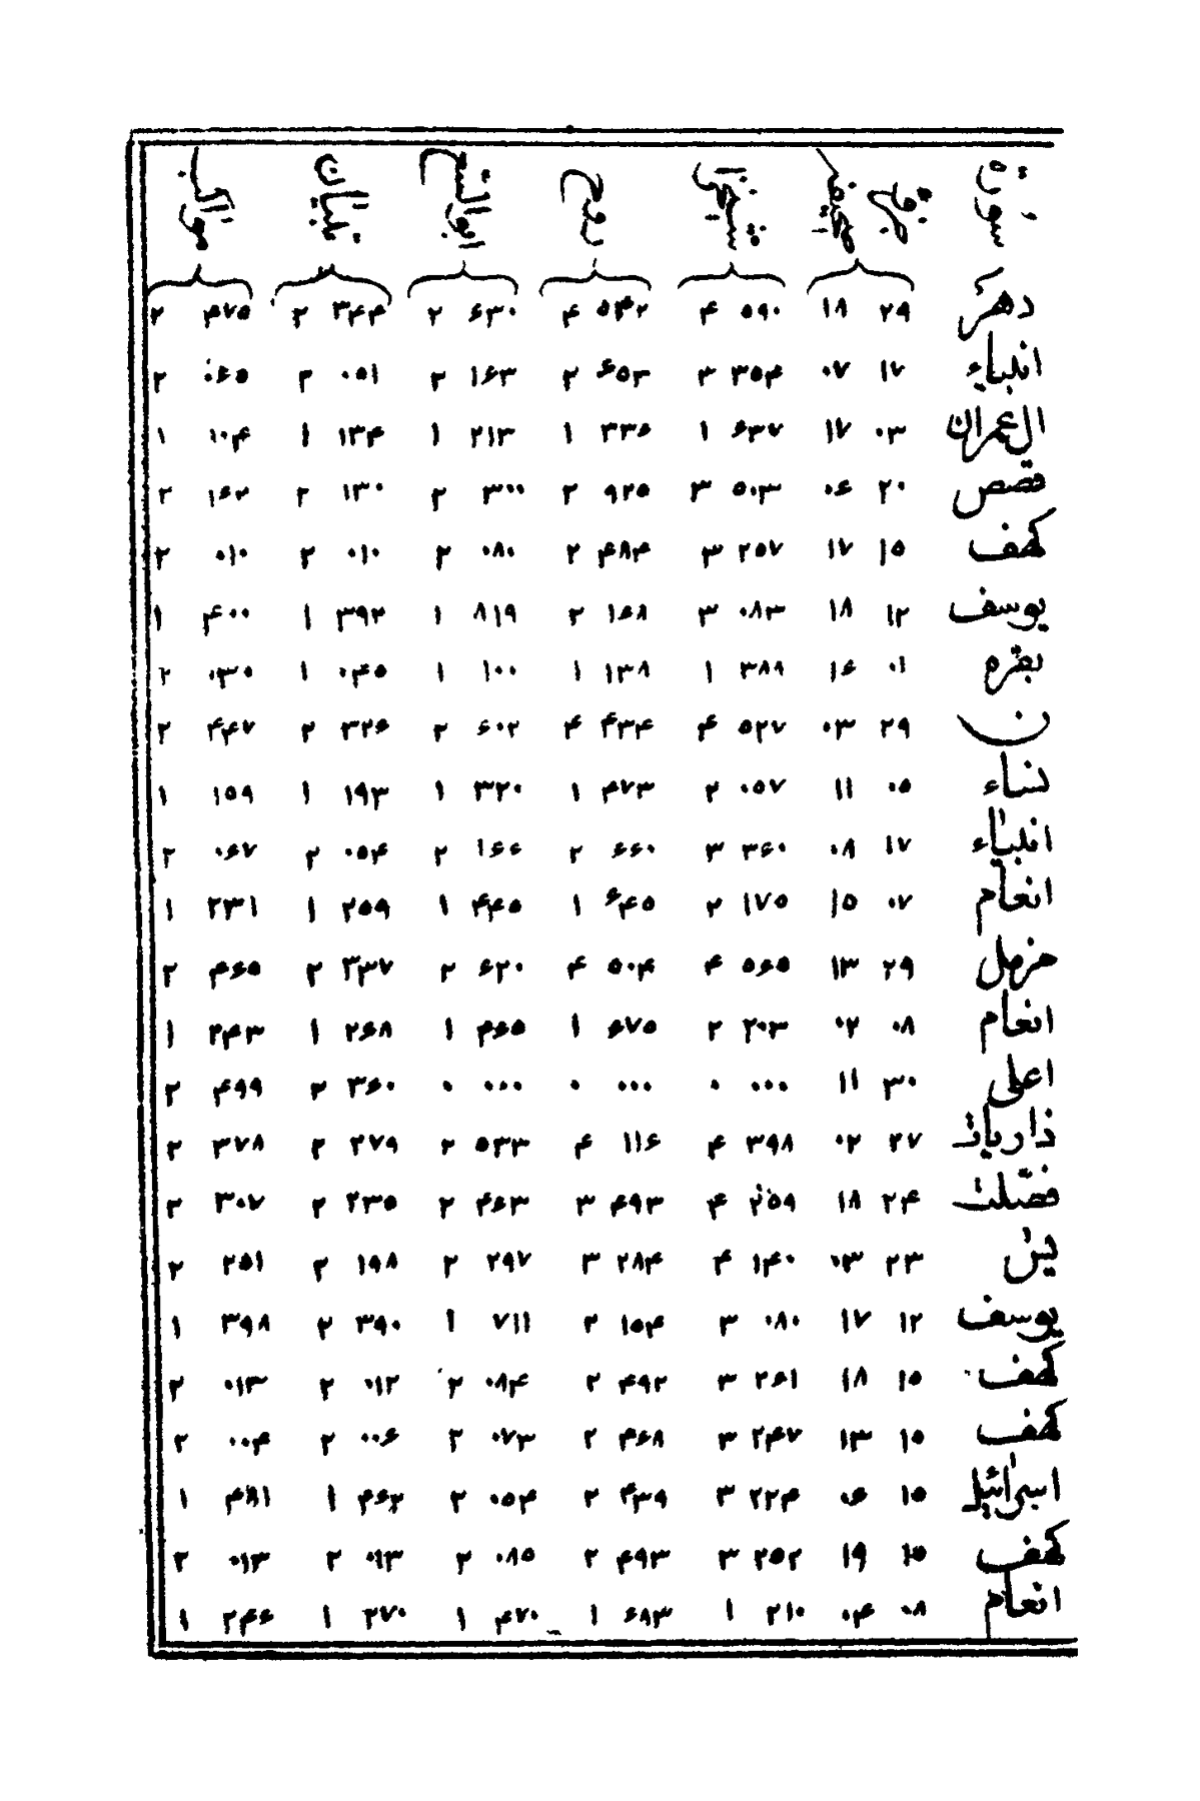 سوره جزء صفحه شیخ روح ابوالفتوح تبیان مواهب
دهر ۲۹ ۱۸ ۵۹۰ ۴ ۵۴۲ ۴ ۶۳۰ ۲ ۳۴۴ ۲ ۴۷۵ ۲
انبیاء ۱۷ ۰۷ ۳۵۴ ۳ ۶۵۳ ۲ ۱۶۳ ۲ ۰۵۱ ۲ ۰۶۵ ۲
ال عمران ۰۳ ۱۷ ۶۳۷ ۱ ۳۳۶ ۱ ۲۱۳ ۱ ۱۳۴ ۱ ۱۰۴ ۱
قصص ۲۰ ۰۶ ۵۰۳ ۳ ۹۲۵ ۲ ۳۰۰ ۲ ۱۳۰ ۲ ۱۶۲ ۲
کهف ۱۵ ۱۷ ۲۵۷ ۳ ۴۸۴ ۲ ۰۸۰ ۲ ۰۱۰ ۲ ۰۱۰ ۲
یوسف ۱۲ ۱۸ ۰۸۳ ۳ ۱۶۸ ۲ ۸۱۹ ۱ ۳۹۲ ۱ ۴۰۰ ۱
بقره ۰۱ ۱۶ ۳۸۹ ۱ ۱۳۸ ۱ ۱۰۰ ۱ ۰۴۵ ۱ ۰۳۰ ۲
ن ۲۹ ۰۳ ۵۲۷ ۴ ۴۳۴ ۴ ۶۰۲ ۲ ۳۲۶ ۲ ۴۴۷ ۲
نساء ۰۵ ۱۱ ۰۵۷ ۲ ۴۷۳ ۱ ۳۲۰ ۱ ۱۹۳ ۱ ۱۵۹ ۱
انبیاء ۱۷ ۰۸ ۳۶۰ ۳ ۶۶۰ ۲ ۱۶۶ ۲ ۰۵۴ ۲ ۰۶۷ ۲
انعام ۰۷ ۱۵ ۱۷۵ ۲ ۶۴۵ ۱ ۴۴۵ ۱ ۲۵۹ ۱ ۲۳۱ ۱
مزمل ۲۹ ۱۳ ۵۶۵ ۴ ۵۰۴ ۴ ۶۲۰ ۲ ۳۳۷ ۲ ۴۶۵ ۲
انعام ۰۸ ۰۲ ۲۰۳ ۲ ۶۷۵ ۱ ۴۶۵ ۱ ۲۶۸ ۱ ۲۴۳ ۱
اعلی ۳۰ ۱۱ ۰۰۰ ۰ ۰۰۰ ۰ ۰۰۰ ۰ ۳۶۰ ۲ ۴۹۹ ۲
ذاریات ۲۷ ۰۲ ۳۹۸ ۴ ۱۱۶ ۴ ۵۳۳ ۲ ۲۷۹ ۲ ۳۷۸ ۲
فصّلت ۲۴ ۱۸ ۲۵۹ ۴ ۴۹۳ ۳ ۴۶۳ ۲ ۲۳۵ ۲ ۳۰۷ ۲
یس ۲۳ ۰۳ ۱۴۰ ۴ ۲۸۴ ۳ ۲۹۷ ۲ ۱۹۸ ۲ ۲۵۱ ۲
یوسف ۱۲ ۱۷ ۰۸۰ ۳ ۱۵۴ ۲ ۷۱۱ ۱ ۳۹۰ ۲ ۳۹۸ ۱
کهف ۱۵ ۱۸ ۲۶۱ ۳ ۴۹۲ ۲ ۰۸۴ ۲ ۰۱۲ ۲ ۰۱۳ ۲
کهف ۱۵ ۱۳ ۲۴۷ ۳ ۴۶۸ ۲ ۰۷۳ ۲ ۰۰۶ ۲ ۰۰۴ ۲
اسرائیل ۱۵ ۰۶ ۲۲۴ ۳ ۴۳۹ ۲ ۰۵۴ ۲ ۴۶۲ ۱ ۴۸۱ ۱
کهف ۱۵ ۱۹ ۲۵۲ ۳ ۴۹۳ ۲ ۰۸۵ ۲ ۰۱۳ ۲ ۰۱۳ ۲
انعام ۰۸ ۰۴ ۲۱۰ ۱ ۶۸۳ ۱ ۴۷۰ ۱ ۲۷۰ ۱ ۲۴۶ ۱